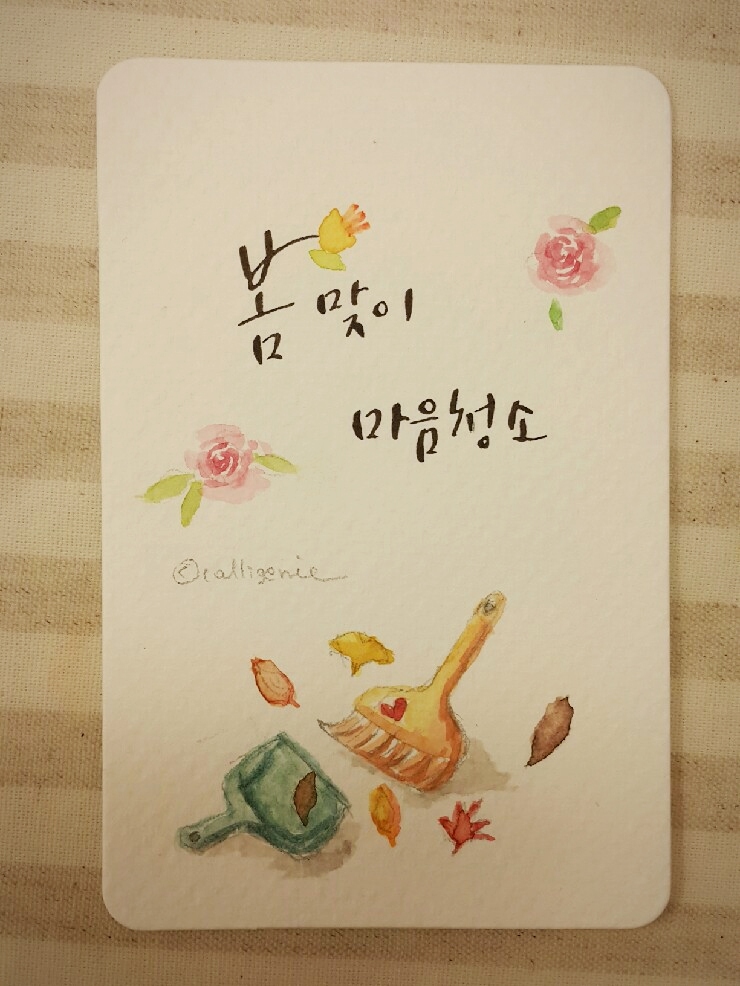 봄맞이
마음청소
©calligenie